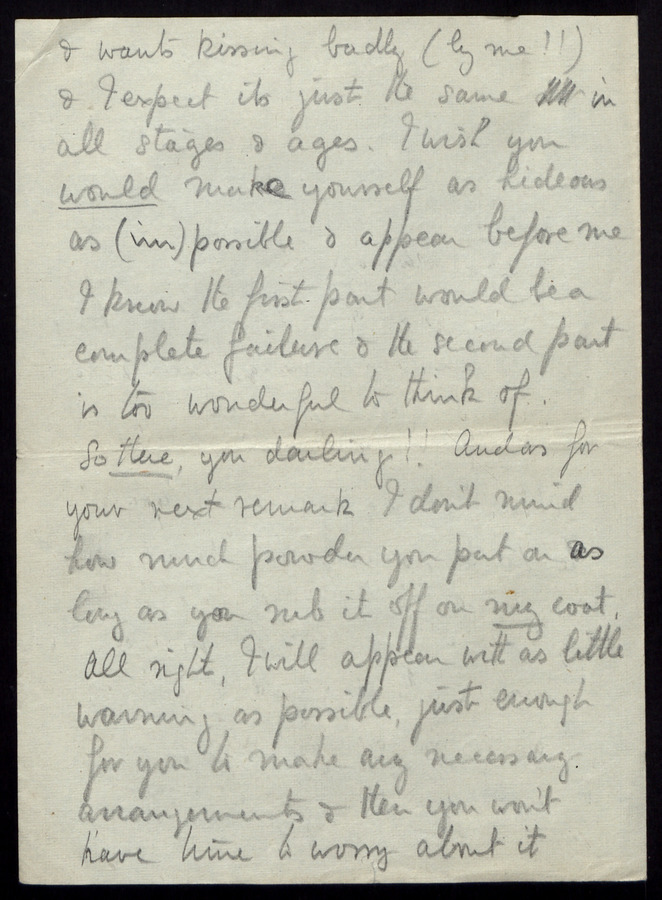 & wants kissing badly (by me!!)
& I expect its just the same in
all stages & ages. I wish you
would make yourself as hideous
as (im)possible & appear before me
I know the first part would be a
complete failure & the second part
is too wonderful to think of.
So there, you darling!! And as for
your next remark I don't mind
how much powder you put on as
long as you rub it off on my coat.
All right, I will appear with as little
warning as possible, just enough
for you to make any necessary
arrangements & then you won't
have time to worry about it